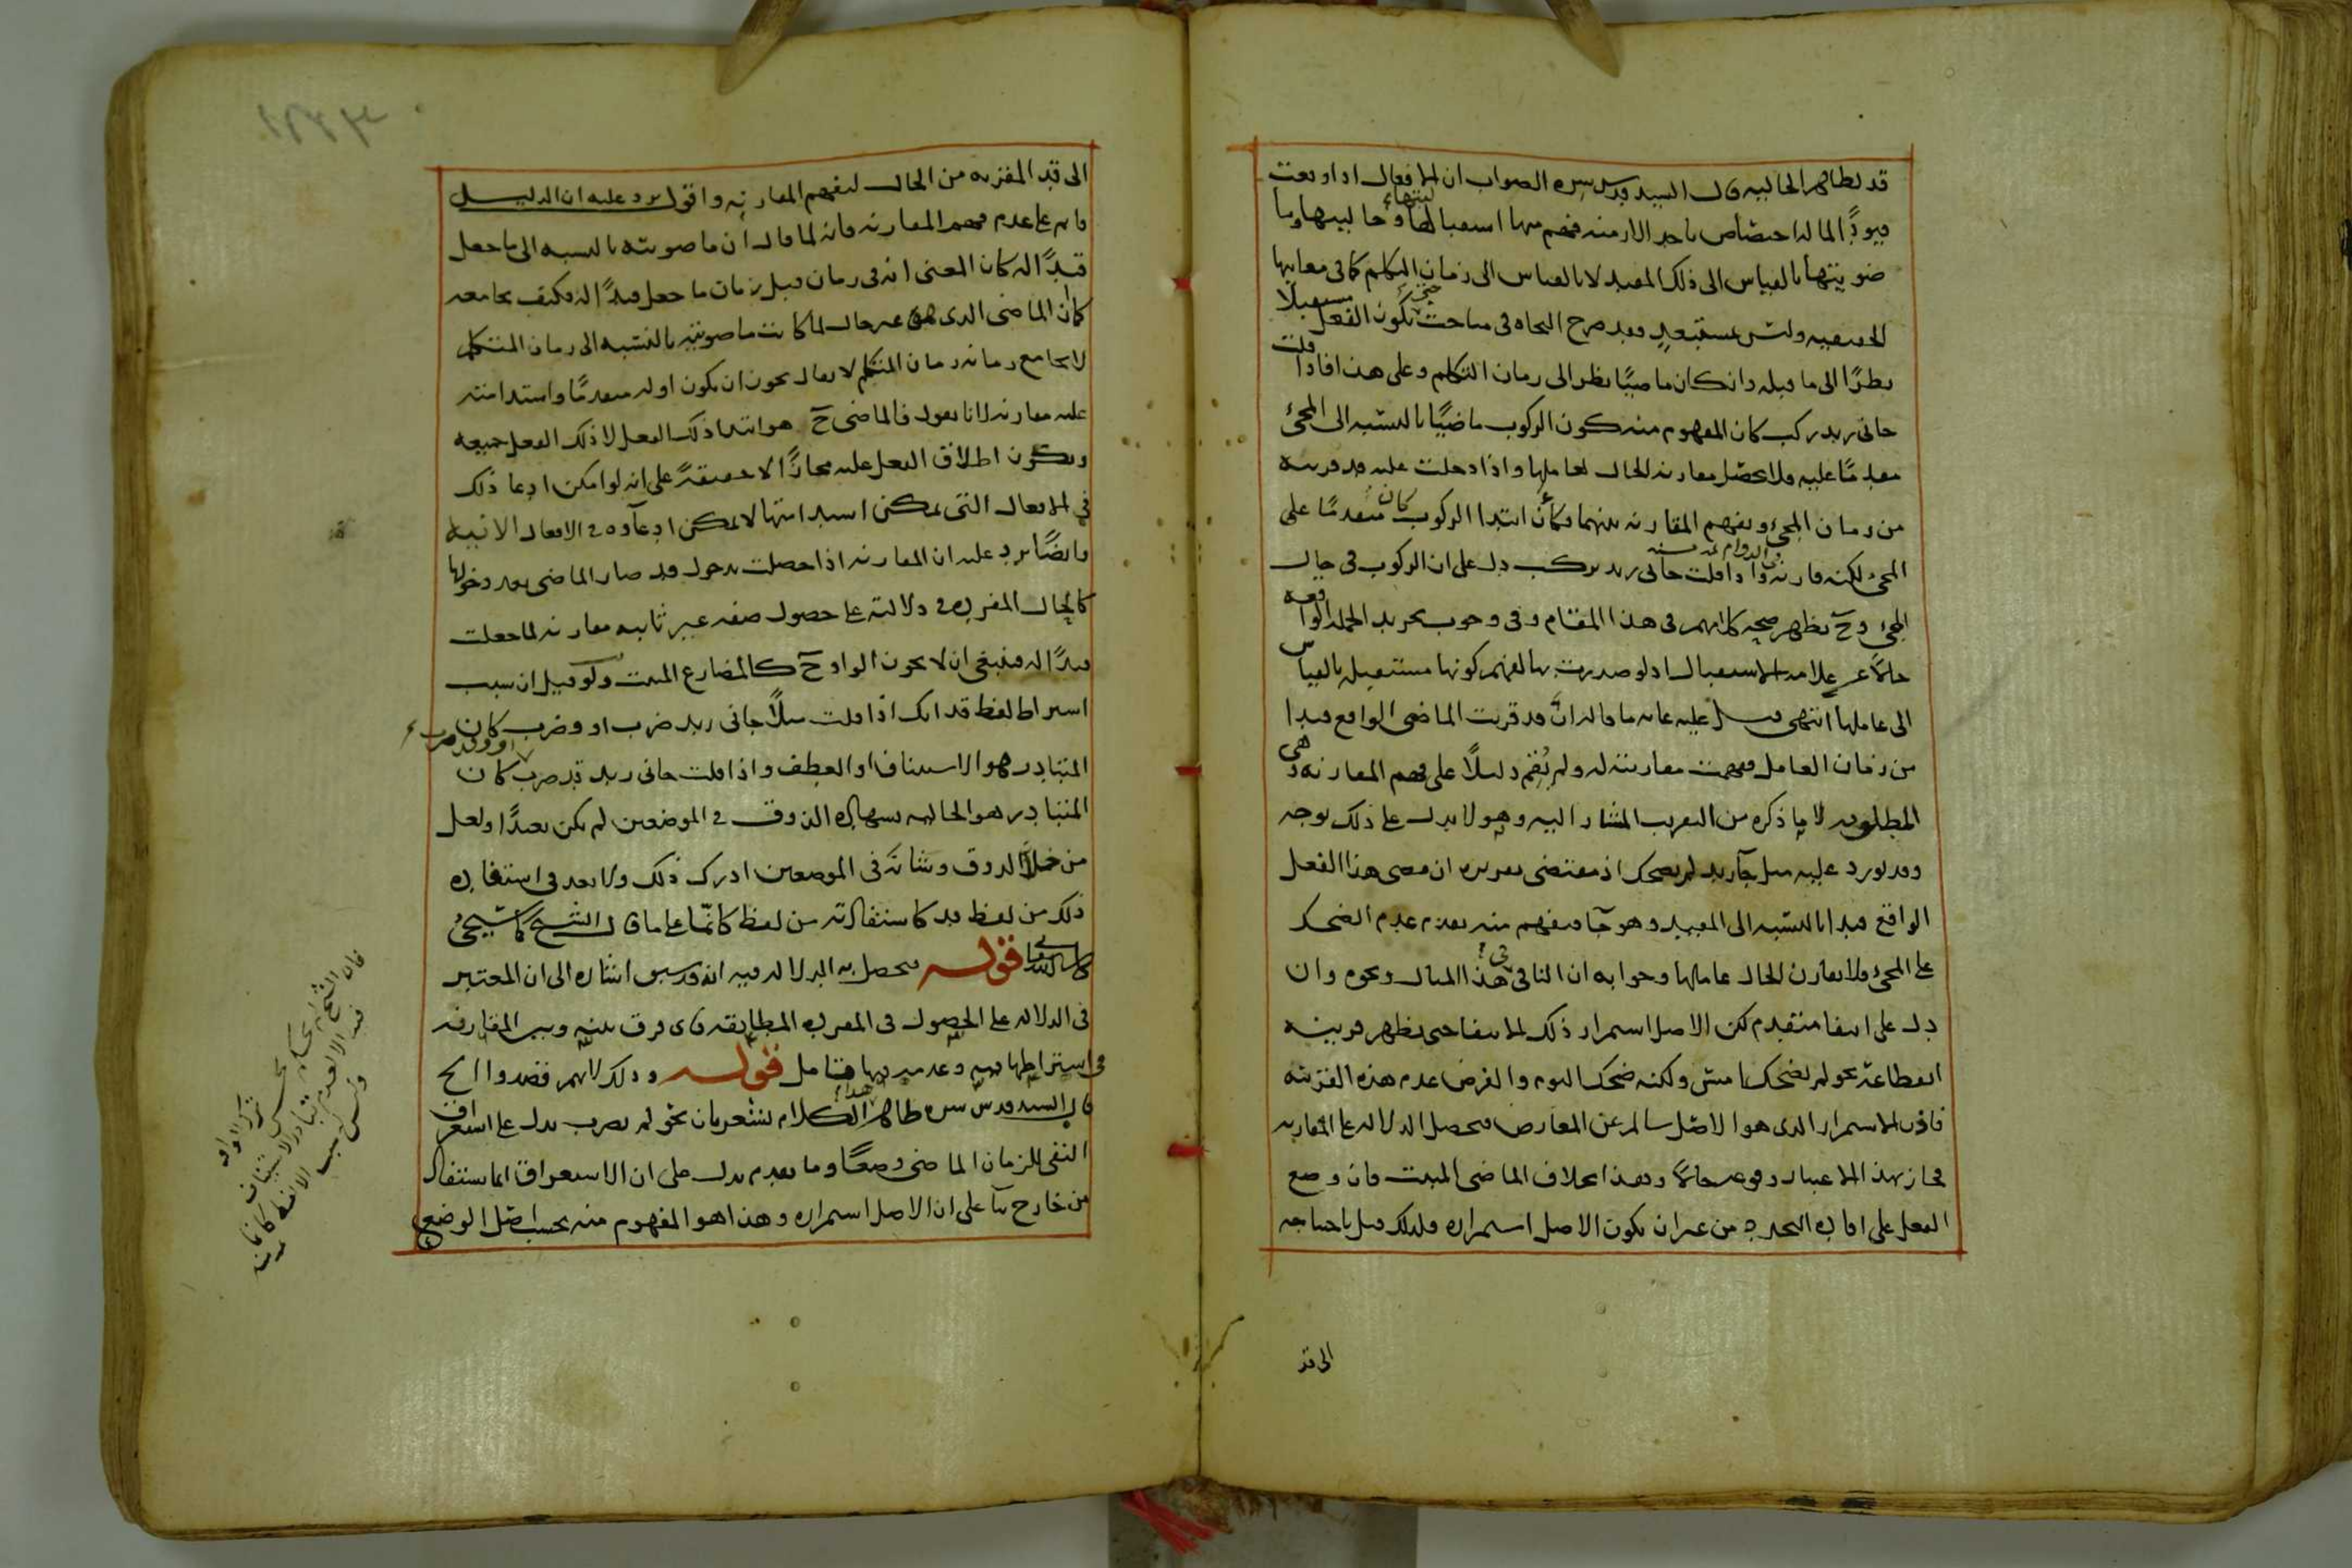 قد لظاهر الحاليه قال السيد قدس سره الصواب ان الافعال اذا وقعت
قيودًا لما له اختصاص باحد الازمنه فهم منها استقباليتها وحاليتها وما
ضويتها بالقياس الى ذلك المقيد لا بالقياس الى زمان التكلم كما فى معانيها
الحقيقيه وليس بمستبعد فقد صرح النحاه فى مباحث حتى بكون الفعل مستقبلا
نظرًا الى ما قبله وان كان ماضيًا نظرا الى زمان التكلم وعلى هذا فاذا قلت
جانى زيد ركب كان المفهوم منه كون الركوب ماضيًا بالنسبه الى المجئ
مقدمًا عليه فلا يحصل مقارنه الحال لعاملها واذا دخلت عليه قد قربته
من زمان المجئ ويفهم المقارنه بينهما فكأن ابتدا الركوب كان متقدمًا على
المجئ لكنه قارنه واذا قلت جانى زيد يركب دل على ان الركوب فى حال
المجئ وح يظهر صحه كلامهم فى هذا المقام وفى وجوب تجريد الجمله الواقعه
حالًا عن علامه الاستقبال اذ لو صدرت بها لفهم كونها مستقبله بالقياس
الى عاملها انتهى قيل عليه غايه ما قاله ان قد قربت الماضى الواقع قيدا
من زمان العامل ففهمت مقارنته له ولم يُقم دليلًا على فهم المقارنه وهى
المطلوبه لا ما ذكره من التقريب المشار اليه وهو لا يدل على ذلك بوجه
وقد يورد عليه مثل جا زيد لم يضحك اذ مقتضى تقريره ان مضى هذا الفعل
الواقع قيدا بالنسبه الى المقيد وهو جا فيفهم منه تقدم عدم الضحك
على المجئ فلا يقارن الحال عاملها وجوابه ان النافى فى هذا المثال ونحوه وان
دل على انتفا متقدم لكن الاصل استمرار ذلك الانتفا حتى يظهر قرينه
انقطاعه نحو لم يضحك امس ولكنه ضحك اليوم والفرض عدم هذه القرينه
فاذن الاستمرار الذى هو الاصل سالم عن المعارض فيحصل الدلاله على المقارنه
فجاز بهذا الاعتبار وقوعه حالًا وهذا بخلاف الماضى المثبت فان وضع
الفعل على افاده التجدد من غير ان يكون الاصل استمراره فلذلك قيل باحتياجه
الى قد
الى قد المقربه من الحال ليفهم المقارنه واقول يرد عليه ان الدليل
قايم على عدم فهم المقارنه فانه لما قال ان ماضويته بالنسبه الى ما جعل
قيدًا له كان المعنى انه فى زمان قبل زمان ما جعل قيدًا له فكيف يجامعه
كما ان الماضى الذى هو غير حال لما كانت ماضويته بالنسبه الى زمان المتكلم
لا يجامع زمانه زمان المتكلم لا يقال يجوز ان يكون اوله متقدمًا واستدامته
عليه مقارنه لانا نقول فالماضى ح هو ابتدا ذلك الفعل لا ذلك الفعل جميعه
ويكون اطلاق الفعل عليه مجازًا لا حقيقهً على انه لو امكن ادعا ذلك
فى الافعال التى يمكن استدامتها لا يمكن ادعاؤه فى الافعال الآنيه
وايضًا يرد عليه ان المقارنه اذا حصلت بدخول قد صار الماضى بعد دخولها
كالحال المفرده فى دلالته على حصول صفه غير ثابته مقارنه لما جعلت
قيدًا له فينبغى ان لا يجوز الواو ح كالمضارع المثبت ولو قيل ان سبب
اشتراط لفظ قد انك اذا قلت مثلًا جانى زيد ضرب او وضرب كان
المتبادر هو الاستيناف او العطف واذا قلت جانى زيد قد ضرب او وقد ضرب كان
المتبادر هو الحاليه بشهاده الذوق فى الموضعين لم يكن بعيدًا ولعل
من خلا الذوق وشانه فى الموضعين ادرك ذلك ولا بعد فى استفاده
ذلك من لفظ قد كاستفادته من لفظ كانّما على ما قال الشيخ كما سيجئ
قوله فيحصل به الدلاله فيه انه قد سبق اشاره الى ان المعتبر
فى الدلاله على الحصول فى المفرده المطابقه فاى فرق بينه وبين المقارنه
فى اشتراطها فيه وعدمه فيها فتامل قوله وذلك لانهم قصدوا الخ
قال السيد قدس سره ظاهر هذا الكلام يشعر بان نحو لم يضرب يدل على استغراق
النفى للزمان الماضى وضعًا وما تقدم يدل على ان الاستغراق انما يستفاد
من خارج بنا على ان الاصل استمراره وهذا هو المفهوم منه بحسب اصل الوضع